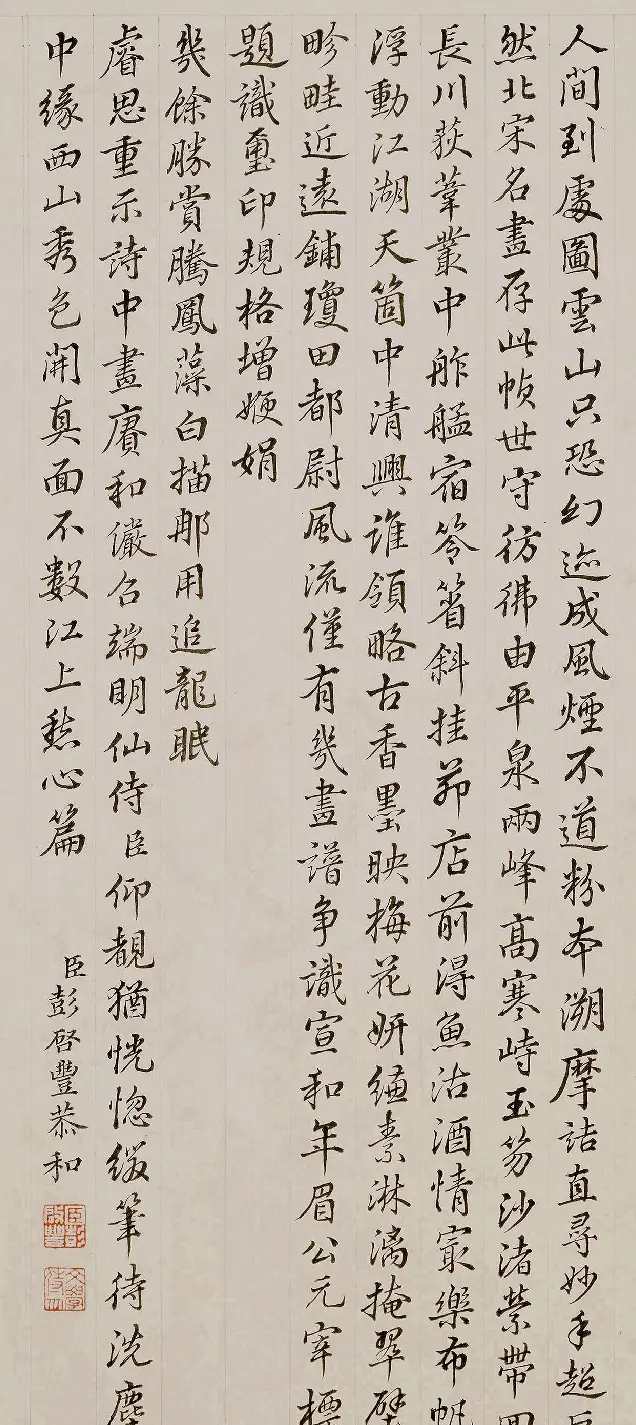 人間到處圖雲山只恐幻迹成風煙不道粉本溯摩詰直尋妙手超
然北宋名畫存此幀世守彷彿由平泉兩峰高寒峙玉笏沙渚縈帶
長川荻葦叢中舴艋宿笭箵斜挂茆店前得魚沽酒情最樂布帆
浮動江湖天箇中清興誰領略古香墨映梅花妍縑素淋漓掩翠
畛畦近遠鋪瓊田都尉風流僅有幾畫譜争識宣和年眉公元宰標
題識璽印規格增娩娟
幾餘勝賞騰鳳藻白描那用追龍眠
睿思重示詩中畫賡和儼召端明仙侍臣仰覩猶恍惚綴筆待洗塵
中緣西山秀色開真面不數江上愁心篇
臣彭啓豐恭和